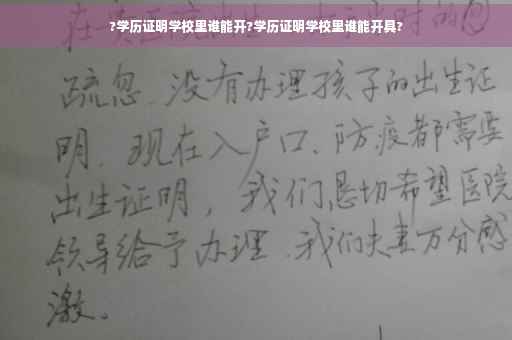 ?学历证明学校里谁能开?学历证明学校里谁能开具?
在 时的
疏忽、没有办理孩子的出生证
明、现在入户口、防疫都需要
出生证明，我们恳切希望医院
领导给予办理、我们夫妻万分感
激。